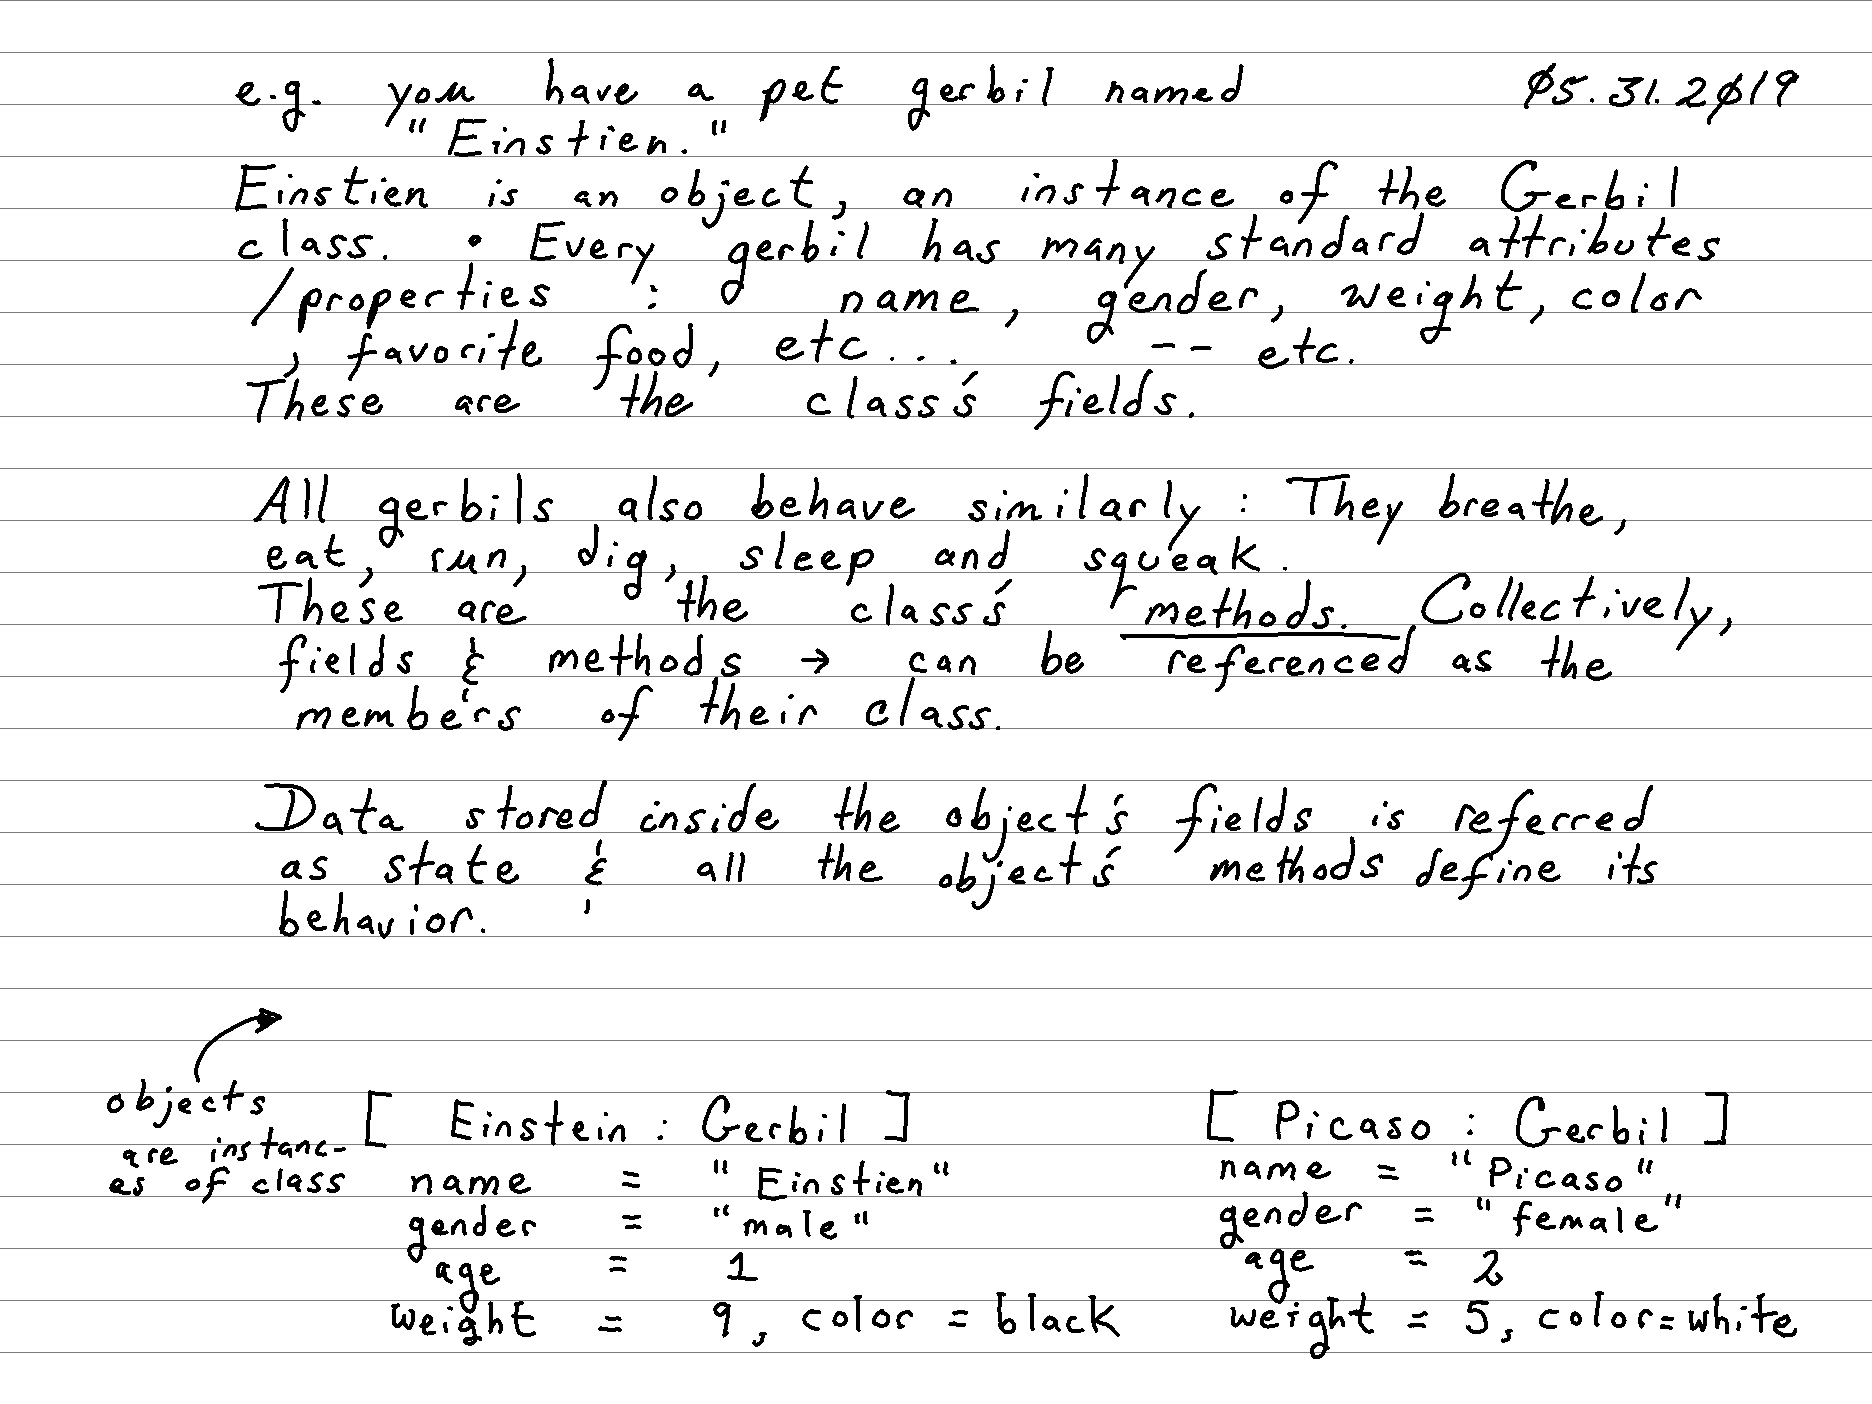 e.g. you have a pet gerbil named 05.31.2019
"Einstien."
Einstien is an object, an instance of the Gerbil
class. • Every gerbil has many standard attributes
/properties : name, gender, weight, color
, favorite food, etc... -- etc.
These are the class's fields.
All gerbils also behave similarly : They breathe,
eat, run, dig, sleep and squeak.
These are the class's methods. Collectively,
fields & methods → can be referenced as the
members of their class.
Data stored inside the object's fields is referred
as state & all the object's methods define its
behavior.
objects
are instanc-
es of class
[ Einstein : Gerbil ]
name = "Einstien"
gender = "male"
age = 1
weight = 9, color = black
[ Picaso : Gerbil ]
name = "Picaso"
gender = "female"
age = 2
weight = 5, color=white